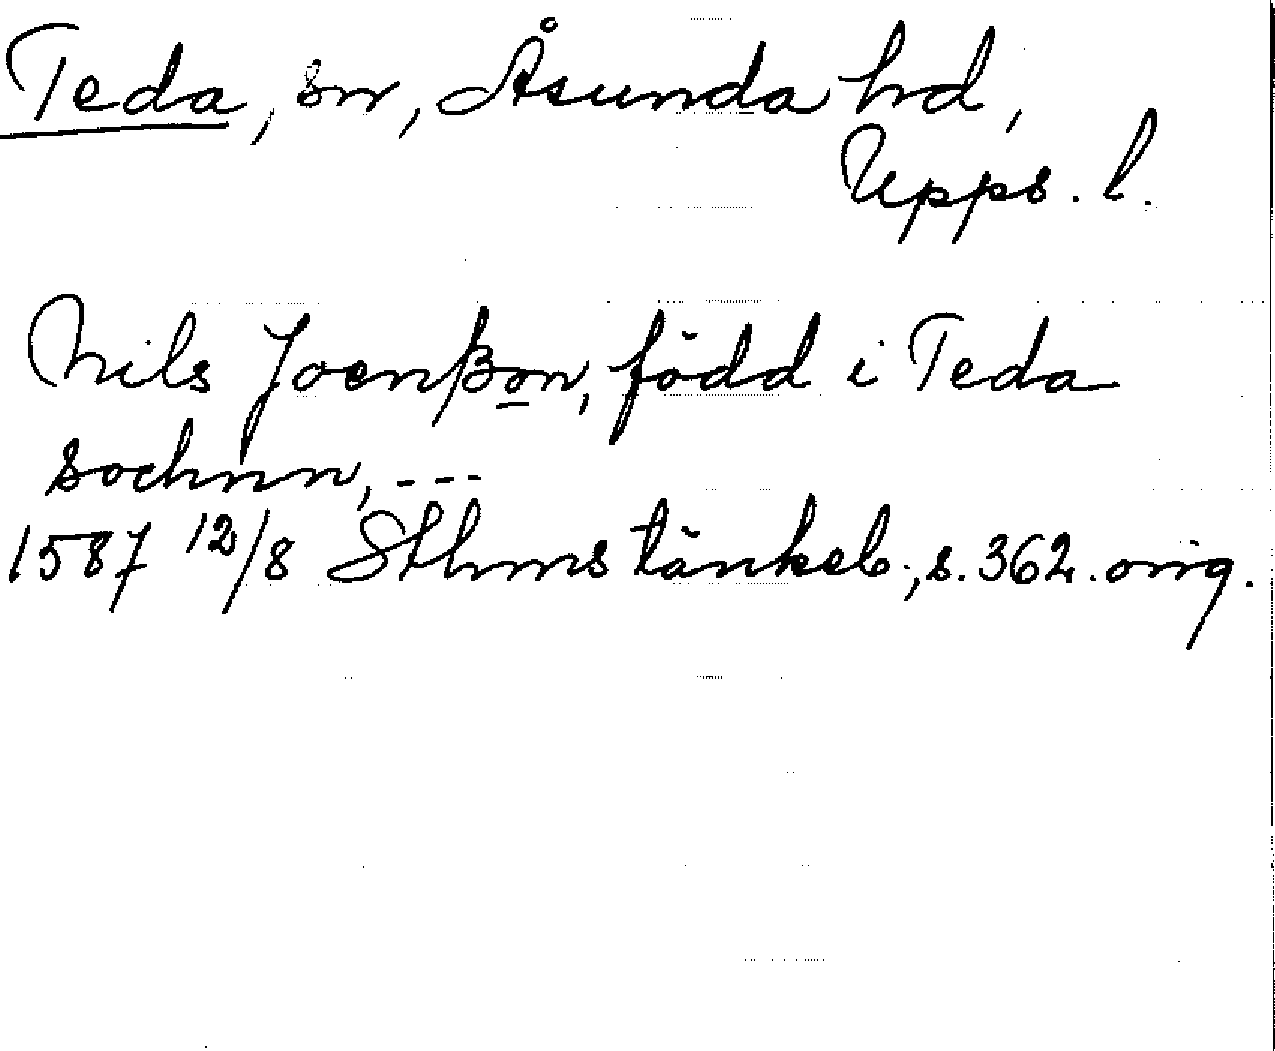 Teda, sn, Åsunda hd,
Upps. l.
Nils Joenßon, född i Teda
sochnn, ---
1587 12/8 Sthms tänkeb., s. 362. orig.